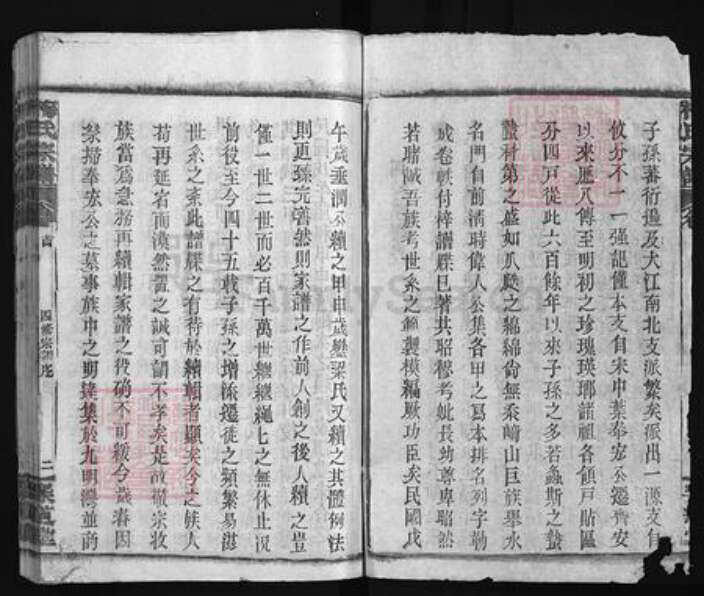 子孫蕃衍遍及大江南北支派繁矣派出一源支自
攸分不一一强記僅本支自宋中葉奉宏公遷齊安
以來歷八傳至明初之珍瑰瑛瑯諸祖各領戸貼區
分四戸從此六百餘年以來子孫之多若螽斯之蟄
蟄科第之盛如瓜瓞之綿綿尙無忝嵴山巨族舉水
名門自前淸時偉人公集各甲之冩本排名列字勒
成卷軼付梓譜牒已著其昭穆考妣長幼尊卑昭然
若睹誠吾族考世系之範製模編厥功臣矣民國戊
午歲垂潤公續之甲申歲燮梁氏又續之其體例法
則更臻完善然則家譜之作前人創之後人續之豈
僅一世二世而必百千萬世繼繼繩上之無休止况
前役至今四十五載子孫之增添遷徙之頻繁易滋
世系之紊此譜牒之有待於續輯者顯矣今之族人
苟再延宕而漠然置之誠可謂不孝矣是故敬宗收
族當爲急務再續輯家譜之役确不可緩今歲春因
祭掃奉宏公之墓事族中之明達集於九明灣並商
氏宗譜
卷首
四修宗譜序
二